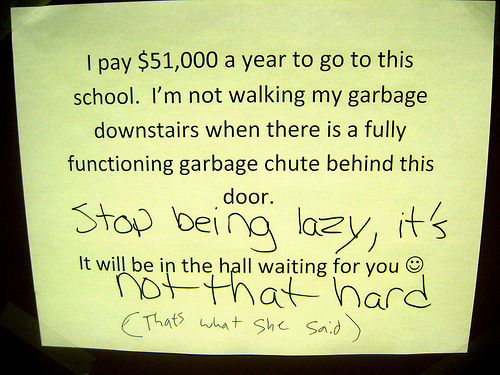 I pay $51,000 a year to go to this
school. I'm not walking my garbage
downstairs when there is a fully
functioning garbage chute behind this
door.
Stop being lazy, it's
It will be in the hall waiting for you ☺
not that hard
(Thats what she said)